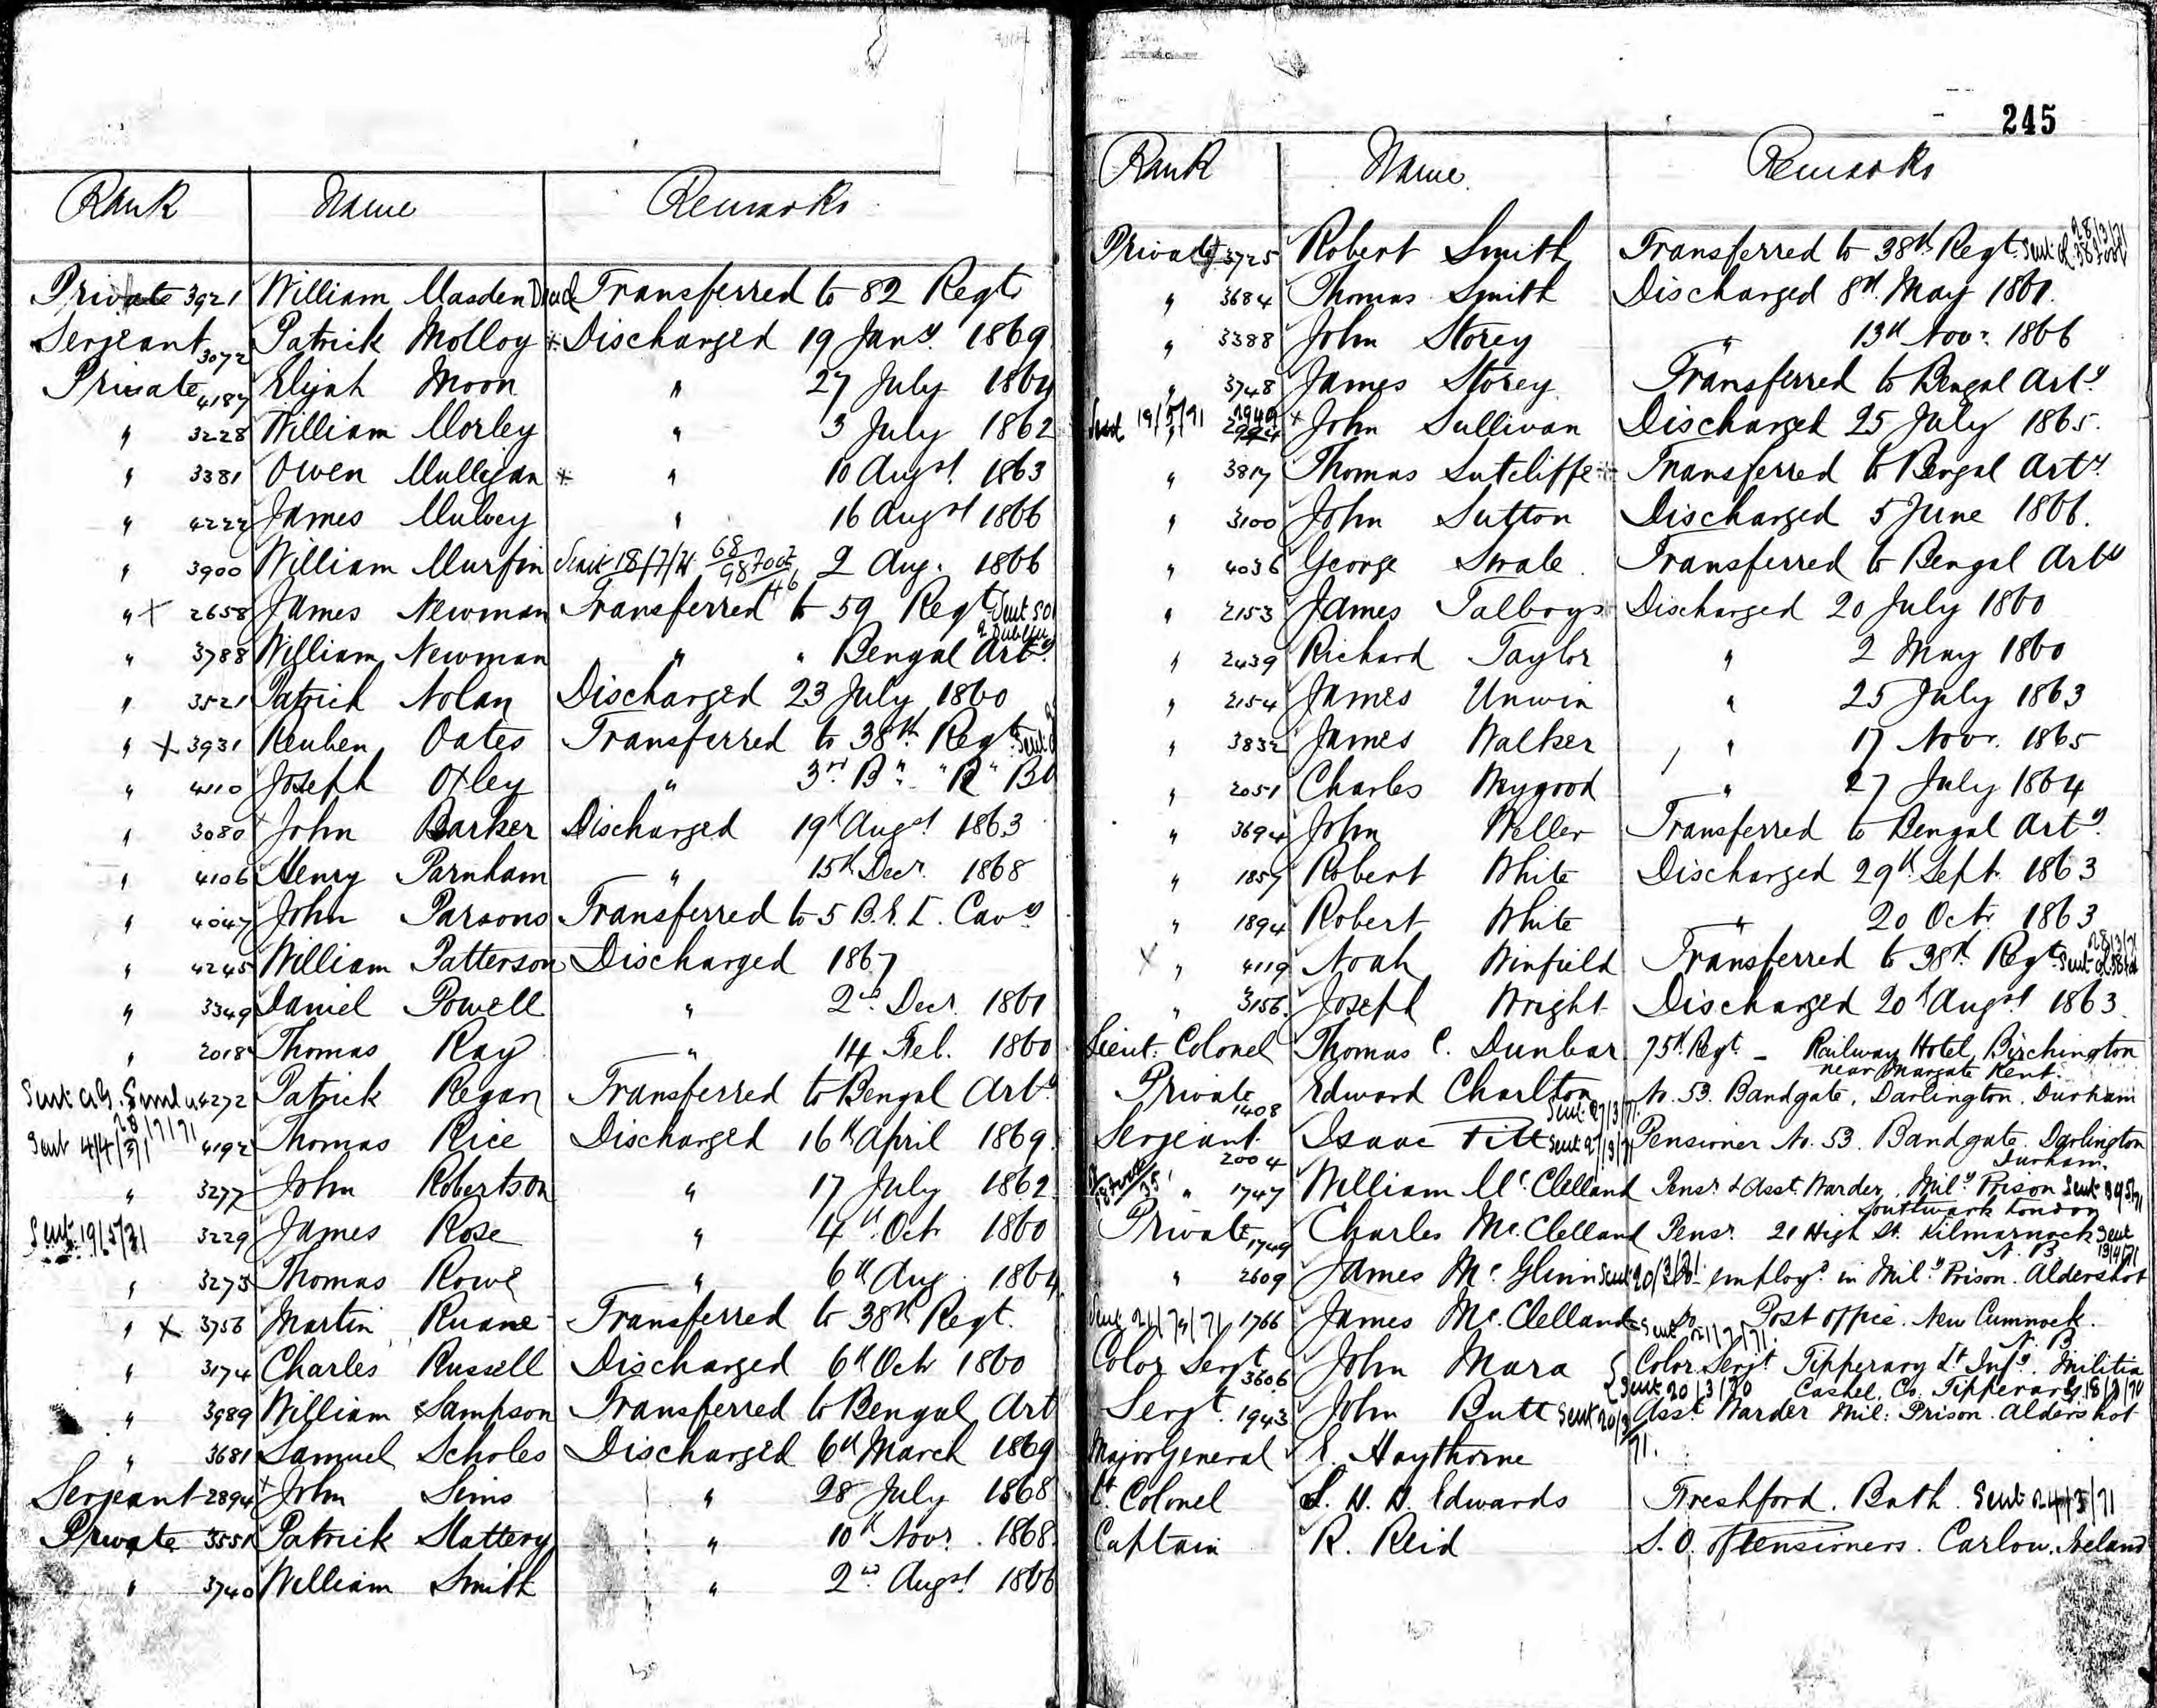 Rank Name Remarks
Private 3921 William Masden Dead Transferred to 82 Regt
Sergeant 3072 Patrick Molloy Discharged 19 Jany. 1869
Private 4187 Elijah Moon " 27 July 1864
" 3228 William Morley " 3 July 1862
" 3381 Owen Mulligan " 10 Augst. 1863
" 4222 James Mulvey " 16 Augst 1866
" 3900 William Murfin 2 Aug. 1866
" X 2658 James Newman Transferred to 59 Regt Sent
" 3788 William Newman " " Bengal Arty.
" 3521 Patrick Nolan Discharged 23 July 1860
" X 3931 Reuben Oates Transferred to 38th Regt. Sent
" 4110 Joseph Oxley " 3rd Bn. "R" B
" 3080 John Barker Discharged 19th Augst 1863
" 4106 Henry Parnham " 15th Decr. 1868
" 4047 John Parsons Transferred to 5 B.E.I. Cavy
" 4245 William Patterson Discharged 1867
" 3349 Daniel Powell " 2nd Decr. 1861
" 2018 Thomas Ray " 14 Feb. 1860
4272 Patrick Regan Transferred to Bengal Arty
28/7/71
4192 Thomas Rice Discharged 16th April 1869.
" 3277 John Robertson " 17 July 1862
Sent 19/5/71 3229 James Rose " 4th Oct 1860
" 3273 Thomas Rowe " 6th Aug. 1864
" X 3756 Martin Ruane Transferred to 38th Regt.
" 3174 Charles Russell Discharged 6th Oct 1860
" 3989 William Sampson Transferred to Bengal Art
" 3681 Samuel Scholes Discharged 6th March 1869
Sergeant 2894 John Sims " 28 July 1868
Private 3551 Patrick Slattery " 10th Novr. 1868
" 3740 William Smith " 2nd Augst 1866
245
Rank Name Remarks
Private 3725 Robert Smith Transferred to 38th Regt. Sent
" 3684 Thomas Smith Discharged 8th May 1861.
" 3388 John Storey " 13th Novr. 1866
" 3748 James Storey Transferred to Bengal Arty
Sent 19/5/71 John Sullivan Discharged 25 July 1865.
" 3817 Thomas Sutcliffe Transferred to Bengal Arty
" 3100 John Sutton Discharged 5 June 1866.
" 4036 George Swale Transferred to Bengal Arty
" 2153 James Talboys Discharged 20 July 1860
" 2439 Richard Taylor " 2 May 1860
" 2154 James Unwin " 25 July 1863
" 3832 James Walker " 17 Novr. 1865
" 2051 Charles Waygood " 27 July 1864
" 3694 John Weller Transferred to Bengal Arty.
" 1857 Robert White Discharged 29th Sept. 1863
" 1894 Robert White " 20 Oct. 1863
X " 4119 Noah Winfield Transferred to 38th Regt. Sent
" 3156 Joseph Wright Discharged 20th Augst 1863.
Lieut: Colonel Thomas C. Dunbar 75th Regt - Railway Hotel, Birchington
near Margate Kent.
Private 1408 Edward Charlton No. 53. Bandgate, Darlington. Durham
Sent 27/3/71
Sergeant 2004 Isaac Pitt Sent 27/3/71 Pensioner No. 53. Bandgate. Darlington
Durham.
" 1747 William McClelland Pensr. & Asst. Warder. Mily Prison Sent
Southwark London
Private 1749 Charles McClelland Pensr. 21 High St. Kilmarnock Sent
N.B. 19/4/71
" 2609 James McGlinn Sent 20/3/71 do employd. in Mily Prison. Aldershot
1766 James McClelland do Post office. New Cumnock.
Sent 21/7/71. N.B
Color Sergt. 3606 John Mara Color Sergt Tipperary Lt Infy. Militia
Sent 20/3/70 Cashel, Co. Tipperary
Sergt. 1943 John Butt Sent 20/3/71. Asst Warder Mil: Prison. Aldershot
Major General E. Haythorne
Lt Colonel Edwards Freshford. Bath. Sent 24/3/71
Captain R. Reid S.O. Pensioners. Carlow. Ireland